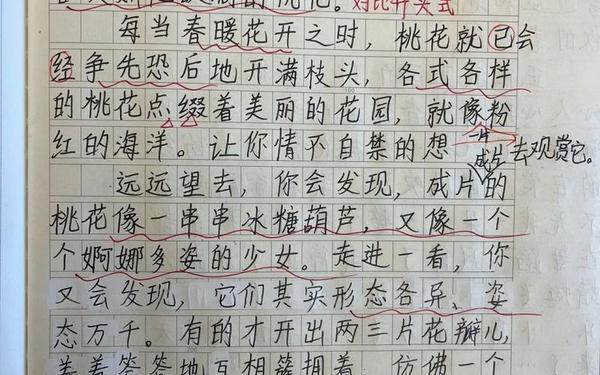 的桃花。对比开头式
每当春暖花开之时，桃花就已会
经争先恐后地开满枝头，各式各样
的桃花点缀着美丽的花园，就像粉
一片
红的海洋。让你情不自禁的想去观赏它。
远远望去，你会发现，成片的
桃花像一串串冰糖葫芦，又像一个
个婀娜多姿的少女。走进一看，你
又会发现，它们其实形态各异、姿
态万千。有的才开出两三片花瓣儿，
羞羞答答地互相簇拥着，仿佛一个